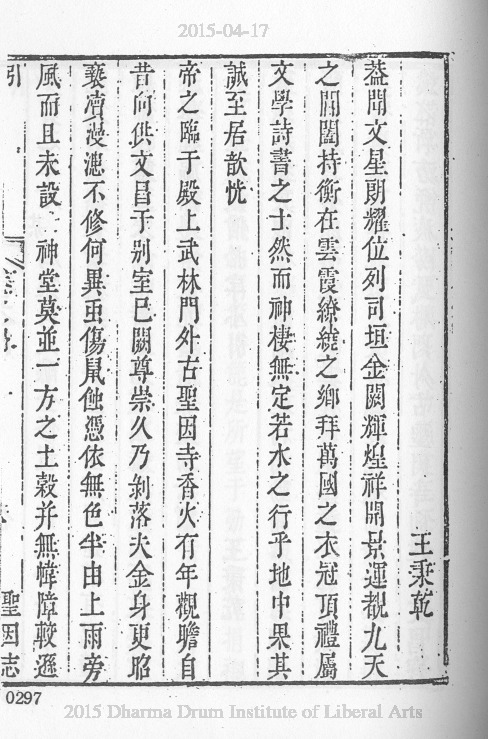 2015-04-17
王秉乾
蓋聞文星朗耀位列司垣金闕輝煌祥開景運覩九天
之閶闔持衡在雲霞繚繞之鄉拜萬國之衣冠頂禮屬
文學詩書之士然而神棲無定若水之行乎地中果其
誠至居歆恍
帝之臨于殿上武林門外古聖因寺香火有年觀瞻自
昔向供文昌于别室已闕尊崇久乃剝落夫金身更昭
褻瀆漫漶不修何異䖝傷鼠蝕憑依無色半由上雨旁
風而且未設 神堂莫並一方之土穀并無幃障較遜
引
聖因志
0297
2015 Dharma Drum Institute of Liberal Arts